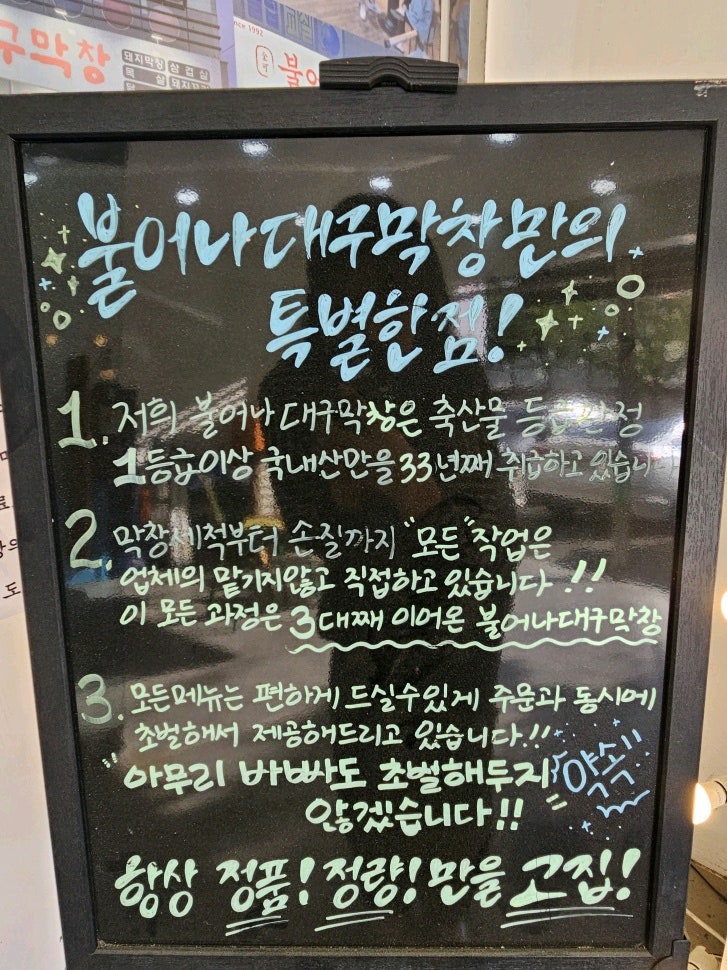 구막창
돼지막창 삼겹살
since 1992
불어
불어나대구막창만의
특별한점!
1. 저희 불어나 대구막창은 축산물 등급판정
1등급이상 국내산만을 33년째 취급하고 있습니다
2. 막창세척부터 손질까지 "모든" 작업은
업체의 맡기지않고 직접하고 있습니다!!
이 모든 과정은 3대째 이어온 불어나대구막창
3. 모든메뉴는 편하게 드실수있게 주문과 동시에
초벌해서 제공해드리고 있습니다!!
"아무리 바빠도 초벌해두지
않겠습니다!!"
약속!!
항상 정품! 정량! 만을 고집!